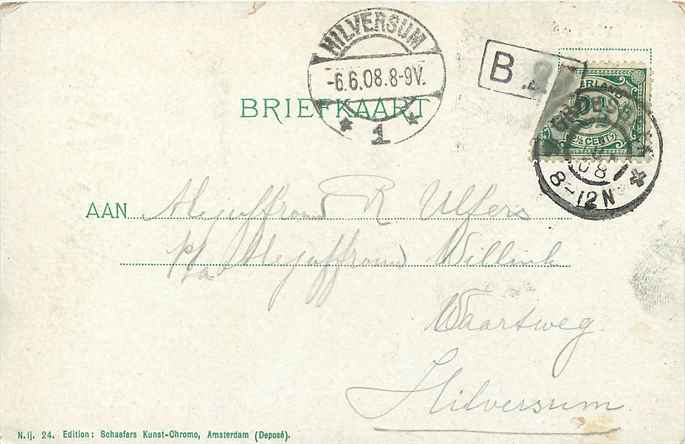 HILVERSUM
-6.6.08.8-9V.
* 1 *
B
BRIEFKAART
CENT
8-12N
AAN Mejuffrouw R Ulfers
p/a Mejuffrouw Willink
Vaartweg
Hilversum.
N.ij. 24. Edition: Schaefers Kunst-Chromo, Amsterdam (Deposé).